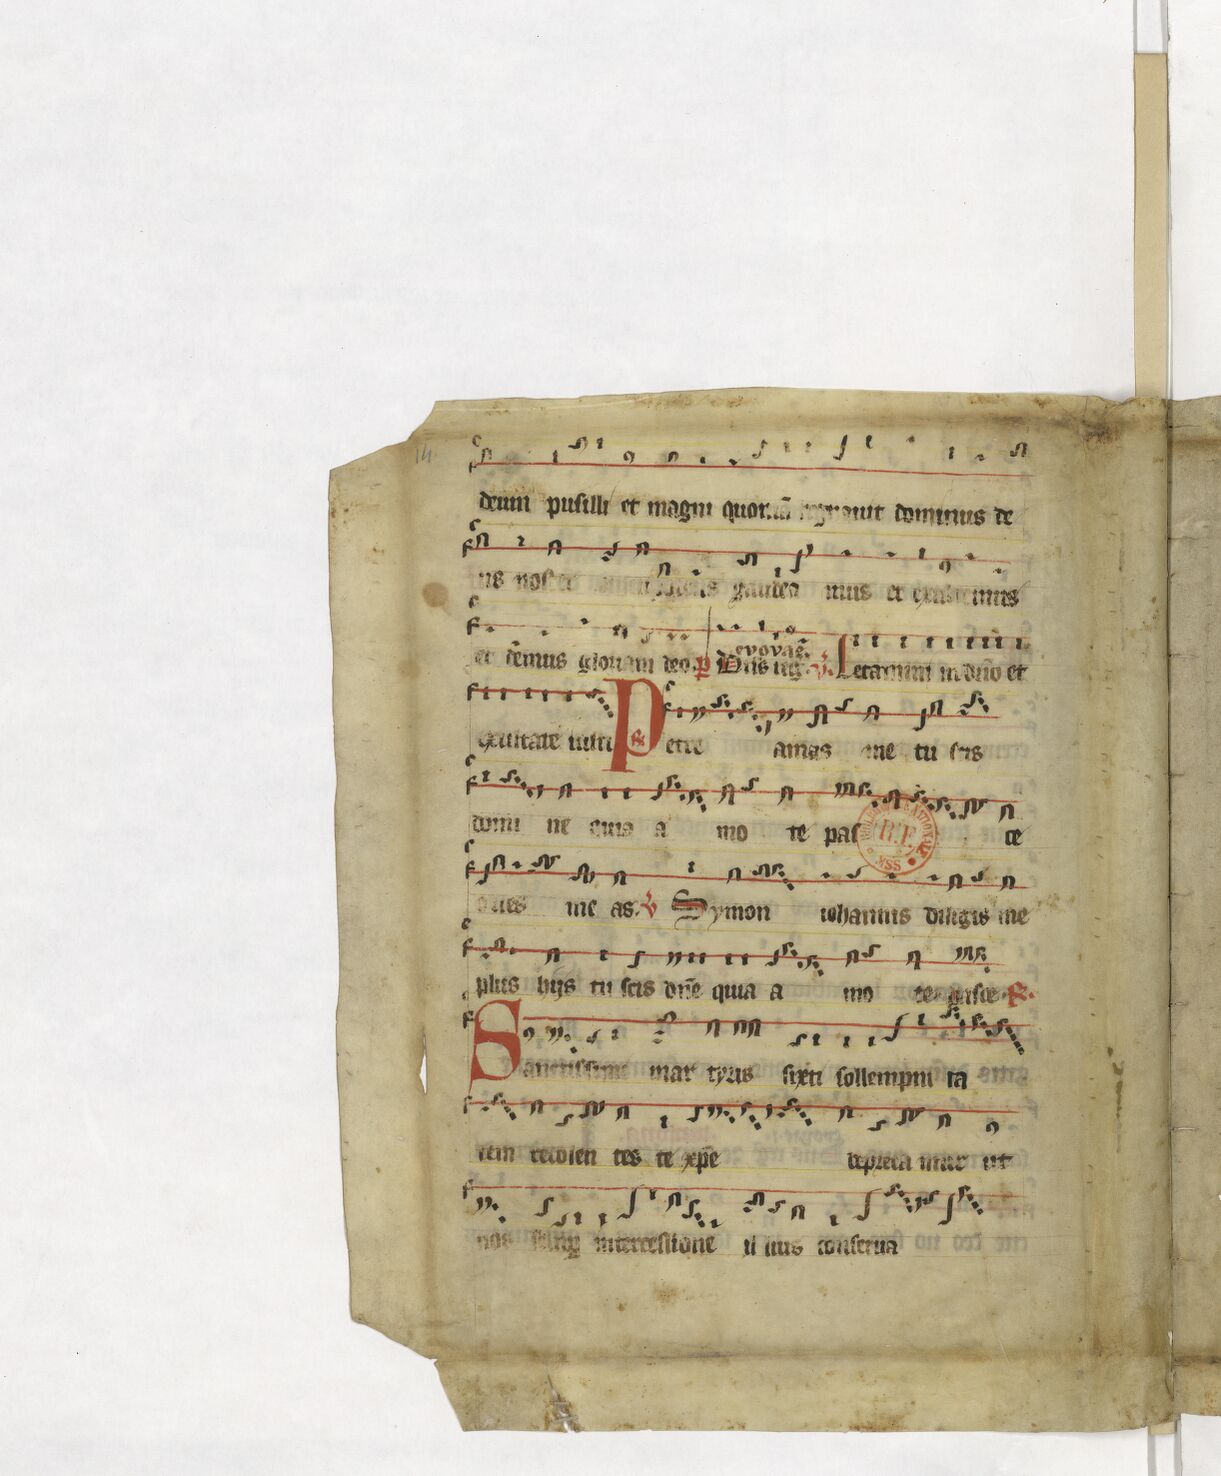 14
deum pusilli et magni quoniā regnauit dominus de
us noster omnipotens gaudea mus et exultemus
et dēmus gloriam deo. p̄ Dn̄s reg. euouae. v. Letamini in dn̄o et
exultate iusti R̸ Petre amas me tu scis
domi ne quia a mo te pas ce
oues me as. V Symon iohannis diligis me
plus hijs tu scis dn̄e quia a mo te. pasce. R̸.
Sanctissimi mar tyris sixti sollempni ta
tem recolen tes te xp̄e depreca mur ut
nos semp̲ intercessione il lius conserua